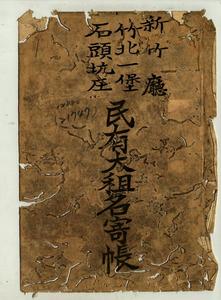 新竹廳
竹北一堡
石頭坑庄
民有大租名寄帳